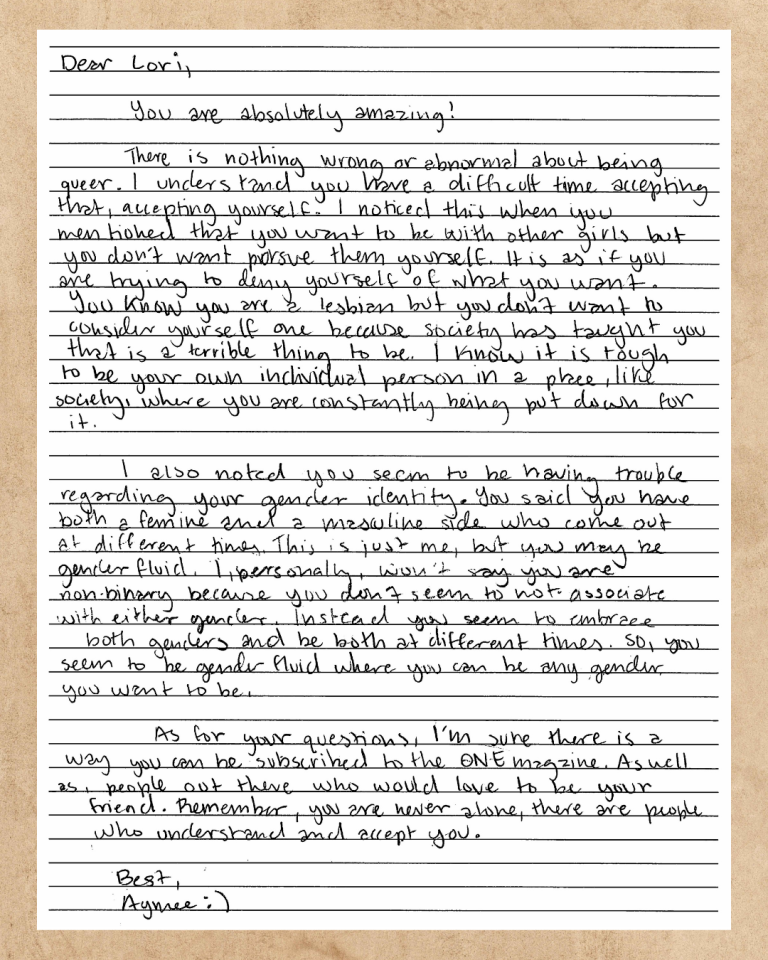 Dear Lori,
You are absolutely amazing!
There is nothing wrong or abnormal about being
queer. I understand you have a difficult time accepting
that, accepting yourself. I noticed this when you
mentioned that you want to be with other girls but
you don't want pursue them yourself. It is as if you
are trying to deny yourself of what you want.
You know you are a lesbian but you don't want to
consider yourself one because society has taught you
that is a terrible thing to be. I know it is tough
to be your own individual person in a place, like
society, where you are constantly being put down for
it.
I also noted you seem to be having trouble
regarding your gender identity. You said you have
both a femine and a masculine side who come out
at different times. This is just me, but you may be
gender fluid. I, personally, won't say you are
non-binary because you don't seem to not associate
with either gender. Instead you seem to embrace
both genders and be both at different times. So, you
seem to be gender fluid where you can be any gender
you want to be.
As for your questions, I'm sure there is a
way you can be subscribed to the ONE magazine. As well
as, people out there who would love to be your
friend. Remember, you are never alone, there are people
who understand and accept you.
Best,
Aymee :)